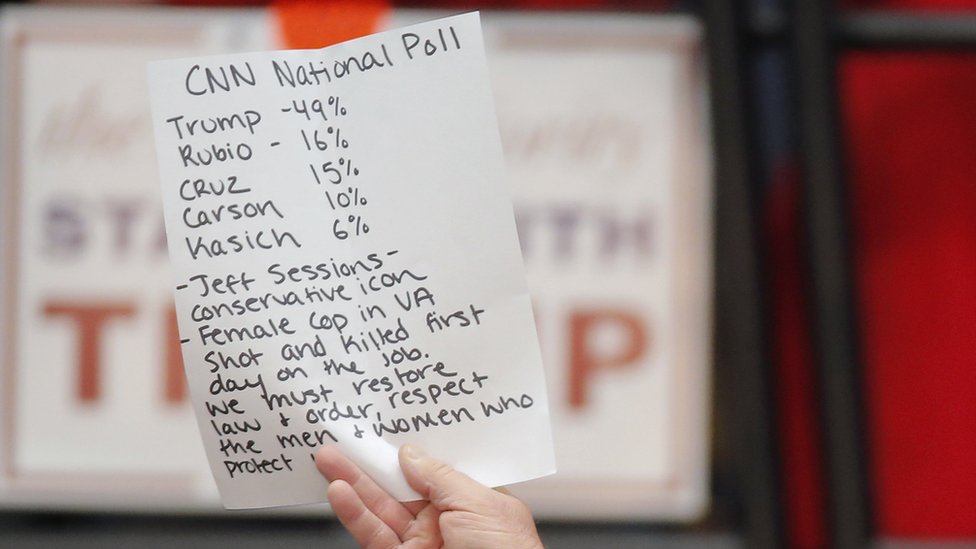 CNN National Poll
Trump - 49%
Rubio - 16%
CRUZ 15%
Carson 10%
Kasich 6%
- Jeff Sessions -
conservative icon
- Female Cop in VA
Shot and killed first
day on the job.
we must restore
law & order, respect
the men & women who
protect
STA ITH
T P